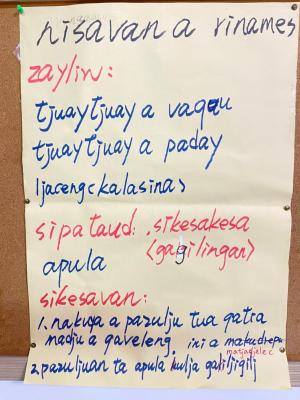 nisavan a rinames
zayliw:
tjuaytjuay a vaqu
tjuaytjuay a paday
ljacengckalasinas
sipataud: .sikesakesa
(gagilingan)
apula
sikesavan:
1. nakuya a pazulju tua qatra
madju a qaveleng ini a makudrepu
matjadjelec
2. pazuljuan ta apula kulja galiljigilj